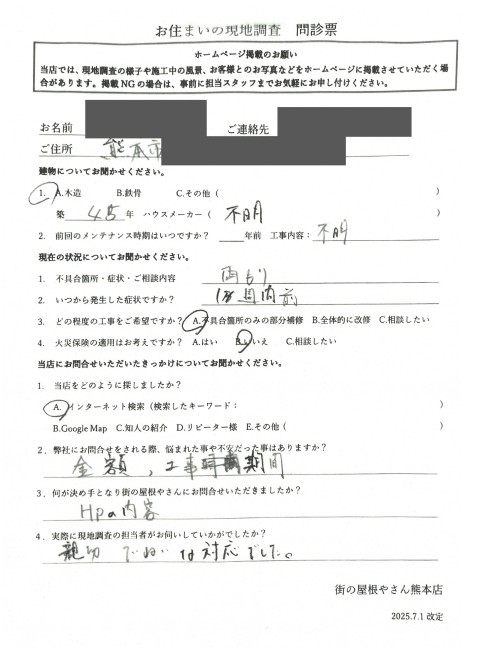 お住まいの現地調査 問診票
ホームページ掲載のお願い
当店では、現地調査の様子や施工中の風景、お客様とのお写真などをホームページに掲載させていただく場
合があります。掲載NGの場合は、事前に担当スタッフまでお気軽にお申し付けください。
お名前 ご連絡先
ご住所 熊本市
建物についてお聞かせください。
1. A.木造 B.鉄骨 C.その他（ ）
築 45 年 ハウスメーカー（ 不明 ）
2. 前回のメンテナンス時期はいつですか？ 年前 工事内容： 不明
現在の状況についてお聞かせください。
1. 不具合箇所・症状・ご相談内容 雨もり
2. いつから発生した症状ですか？ 1ヶ月以内前
3. どの程度の工事をご希望ですか？ A.不具合箇所のみの部分補修 B.全体的に改修 C.相談したい
4. 火災保険の適用はお考えですか？ A.はい B.いいえ C.相談したい
当店にお問合せいただいたきっかけについてお聞かせください。
1. 当店をどのように探しましたか？
A.インターネット検索（検索したキーワード： ）
B.Google Map C.知人の紹介 D.リピーター様 E.その他（ ）
2. 弊社にお問合せをされる際、悩まれた事や不安だった事はありますか？
金額、工事期間
3. 何が決め手となり街の屋根やさんにお問合せいただきましたか？
Hpの内容
4. 実際に現地調査の担当者がお伺いしていかがでしたか？
親切 ていねいな対応でした。
街の屋根やさん熊本店
2025.7.1 改定